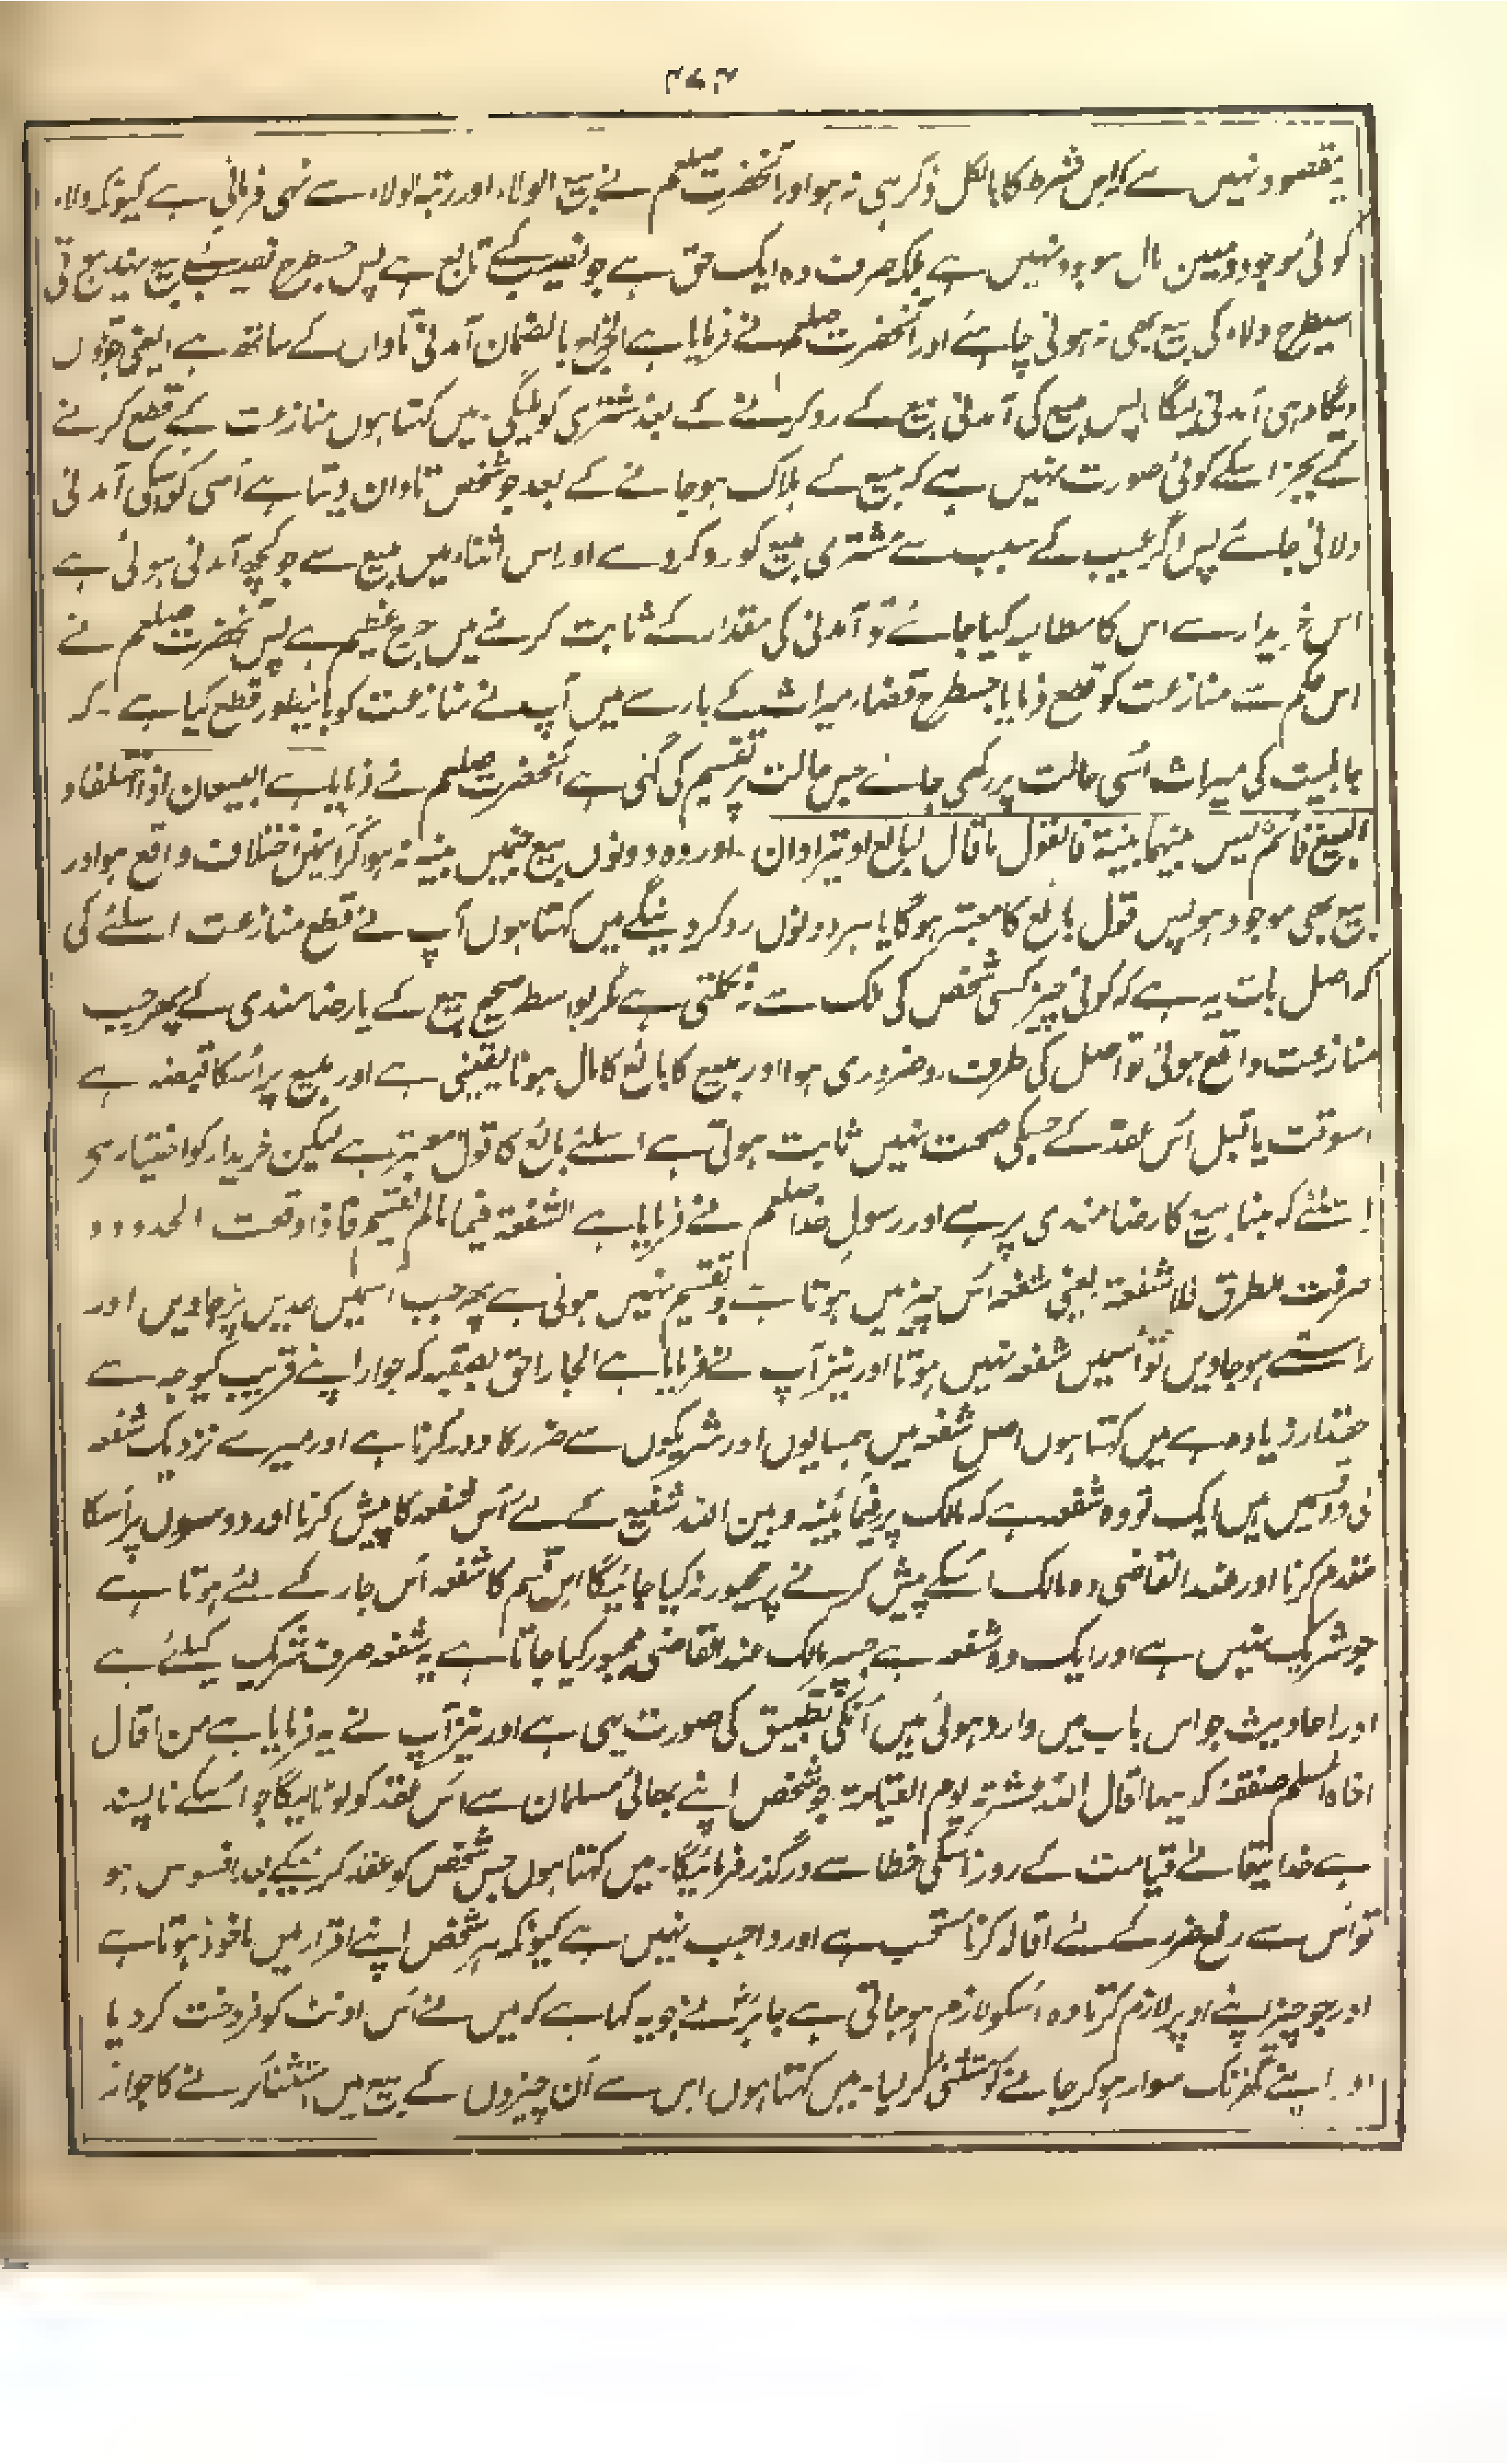 ۴۷۶
یہ مقصود نہیں ہے کہ اس شرط کا بالکل ذکر ہی نہ ہو اور آنحضرت صلعم نے بیع الولاء اور ہبۃ الولاء سے نہی فرمائی ہے کیونکہ ولاء
کوئی موجود و معین مال موجود نہیں ہے بلکہ صرف وہ ایک حق ہے جو نسب کے تابع ہے پس جسطرح نسب کی بیع نہیں ہوتی
اسیطرح ولاء کی بیع بھی نہ ہونی چاہئے اور آنحضرت صلعم نے فرمایا ہے الخراج بالضمان آمدنی تاوان کے ساتھ ہے یعنی جو تاوان
دیگا وہی آمدنی لیگا پس مبیع کی آمدنی بیع کے رد کرنے کے بعد مشتری کو ملیگی۔ میں کہتا ہوں منازعت کے قطع کرنے
کے بجز اسکے کوئی صورت نہیں ہے کہ مبیع کے ہلاک ہو جانے کے بعد جو شخص تاوان دیتا ہے اُسی کو اسکی آمدنی
دلائی جائے پس اگر عیب کے سبب سے مشتری مبیع کو رد کر دے اور اس اثناء میں مبیع سے جو کچھ آمدنی ہوئی ہے
اس خریدار سے اس کا مطالبہ کیا جائے تو آمدنی کی مقدار کے ثابت کرنے میں حرج عظیم ہے پس آنحضرت صلعم نے
اس حکم سے منازعت کو قطع فرمایا جسطرح قضاء میراث کے بارے میں آپ نے منازعت کو باینطور قطع کیا ہے۔ کہ
جاہلیت کی میراث اُسی حالت پر رکھی جائے جس حالت پر تقسیم کی گئی ہے آنحضرت صلعم نے فرمایا ہے البیعان اذا اختلفا و
المبیع قائم لیس بینہما بینۃ فالقول ما قال البائع او یترادان۔ اور وہ دونوں بیع جنمیں بینہ نہ ہو اگر انمیں اختلاف واقع ہو اور
مبیع بھی موجود ہو پس قول بائع کا معتبر ہوگا یا ہر دونوں رد کر دینگے میں کہتا ہوں آپ نے قطع منازعت اسلئے کی
کہ اصل بات یہ ہے کہ کوئی چیز کسی شخص کی ملک سے نہ نکلتی ہے مگر بواسطہ صحیح بیع کے یا رضامندی کے پھر جب
منازعت واقع ہوئی تو اصل کی طرف رد ضروری ہوا اور مبیع کا بائع کا مال ہونا یقینی ہے اور مبیع پر اُسکا قبضہ ہے
اسوقت یا قبل اُس عقد کے جسکی صحت نہیں ثابت ہوتی ہے اسلئے بائع کا قول معتبر ہے لیکن خریدار کو اختیار ہے
اسلئے کہ بنا بیع کا رضامندی پر ہے اور رسول خدا صلعم نے فرمایا ہے الشفعۃ فیما لم یقسم فاذا وقعت الحدود و
صرفت الطرق فلا شفعۃ یعنی شفعہ اُس چیز میں ہوتا ہے جو تقسیم نہیں ہوئی ہے پھر جب اسمیں حدیں پڑ جاویں اور
راستے ہو جاویں تو اُسمیں شفعہ نہیں ہوتا اور نیز آپ نے فرمایا ہے الجار احق بصقبہ کہ جوار اپنے قریب کیوجہ سے
حقدار زیادہ ہے میں کہتا ہوں اصل شفعہ میں ہمسایوں اور شریکوں سے ضرر کا دور کرنا ہے اور میرے نزدیک شفعہ
کی دو قسمیں ہیں ایک تو وہ شفعہ ہے کہ مالک پر فیما بینہ و بین اللہ شفیع کے لئے اُس شفعہ کا پیش کرنا اور دوسروں پر اُسکا
مقدم کرنا اور عند القاضی وہ مالک اُسکے پیش کرنے پر مجبور نہ کیا جائیگا اس قسم کا شفعہ اُس جار کے لئے ہوتا ہے
جو شریک نہیں ہے اور ایک وہ شفعہ ہے جسپر مالک عند القاضی مجبور کیا جاتا ہے یہ شفعہ صرف شریک کیلئے ہے
اور احادیث جو اس باب میں وارد ہوئی ہیں اُنکی تطبیق کی صورت یہی ہے اور نیز آپ نے یہ فرمایا ہے من اقال
اخاہ المسلم صفقۃ کرہہا اقال اللہ عشرتہ یوم القیامۃ جو شخص اپنے بھائی مسلمان سے اُس عقد کو لوٹا لیگا جو اُسکے ناپسند
ہے خدایتعالے قیامت کے روز اُسکی خطا سے درگذر فرمائیگا۔ میں کہتا ہوں جس شخص کو عقد کرنیکے بعد افسوس ہو
تو اُس سے رفع ضرر کے لئے اقالہ کرنا مستحب ہے اور واجب نہیں ہے کیونکہ ہر شخص اپنے اقرار میں ماخوذ ہوتا ہے
اور جو چیز اپنے اوپر لازم کرتا وہ اُسکو لازم ہو جاتی ہے جابرؓ نے جو یہ کہا ہے کہ میں نے اُس اونٹ کو فروخت کر دیا
اور اپنے گھر تک سوار ہو کر جانے کو مستثنیٰ کر لیا۔ میں کہتا ہوں اس سے اُن چیزوں کے بیع میں استثنا کرنے کا جواز